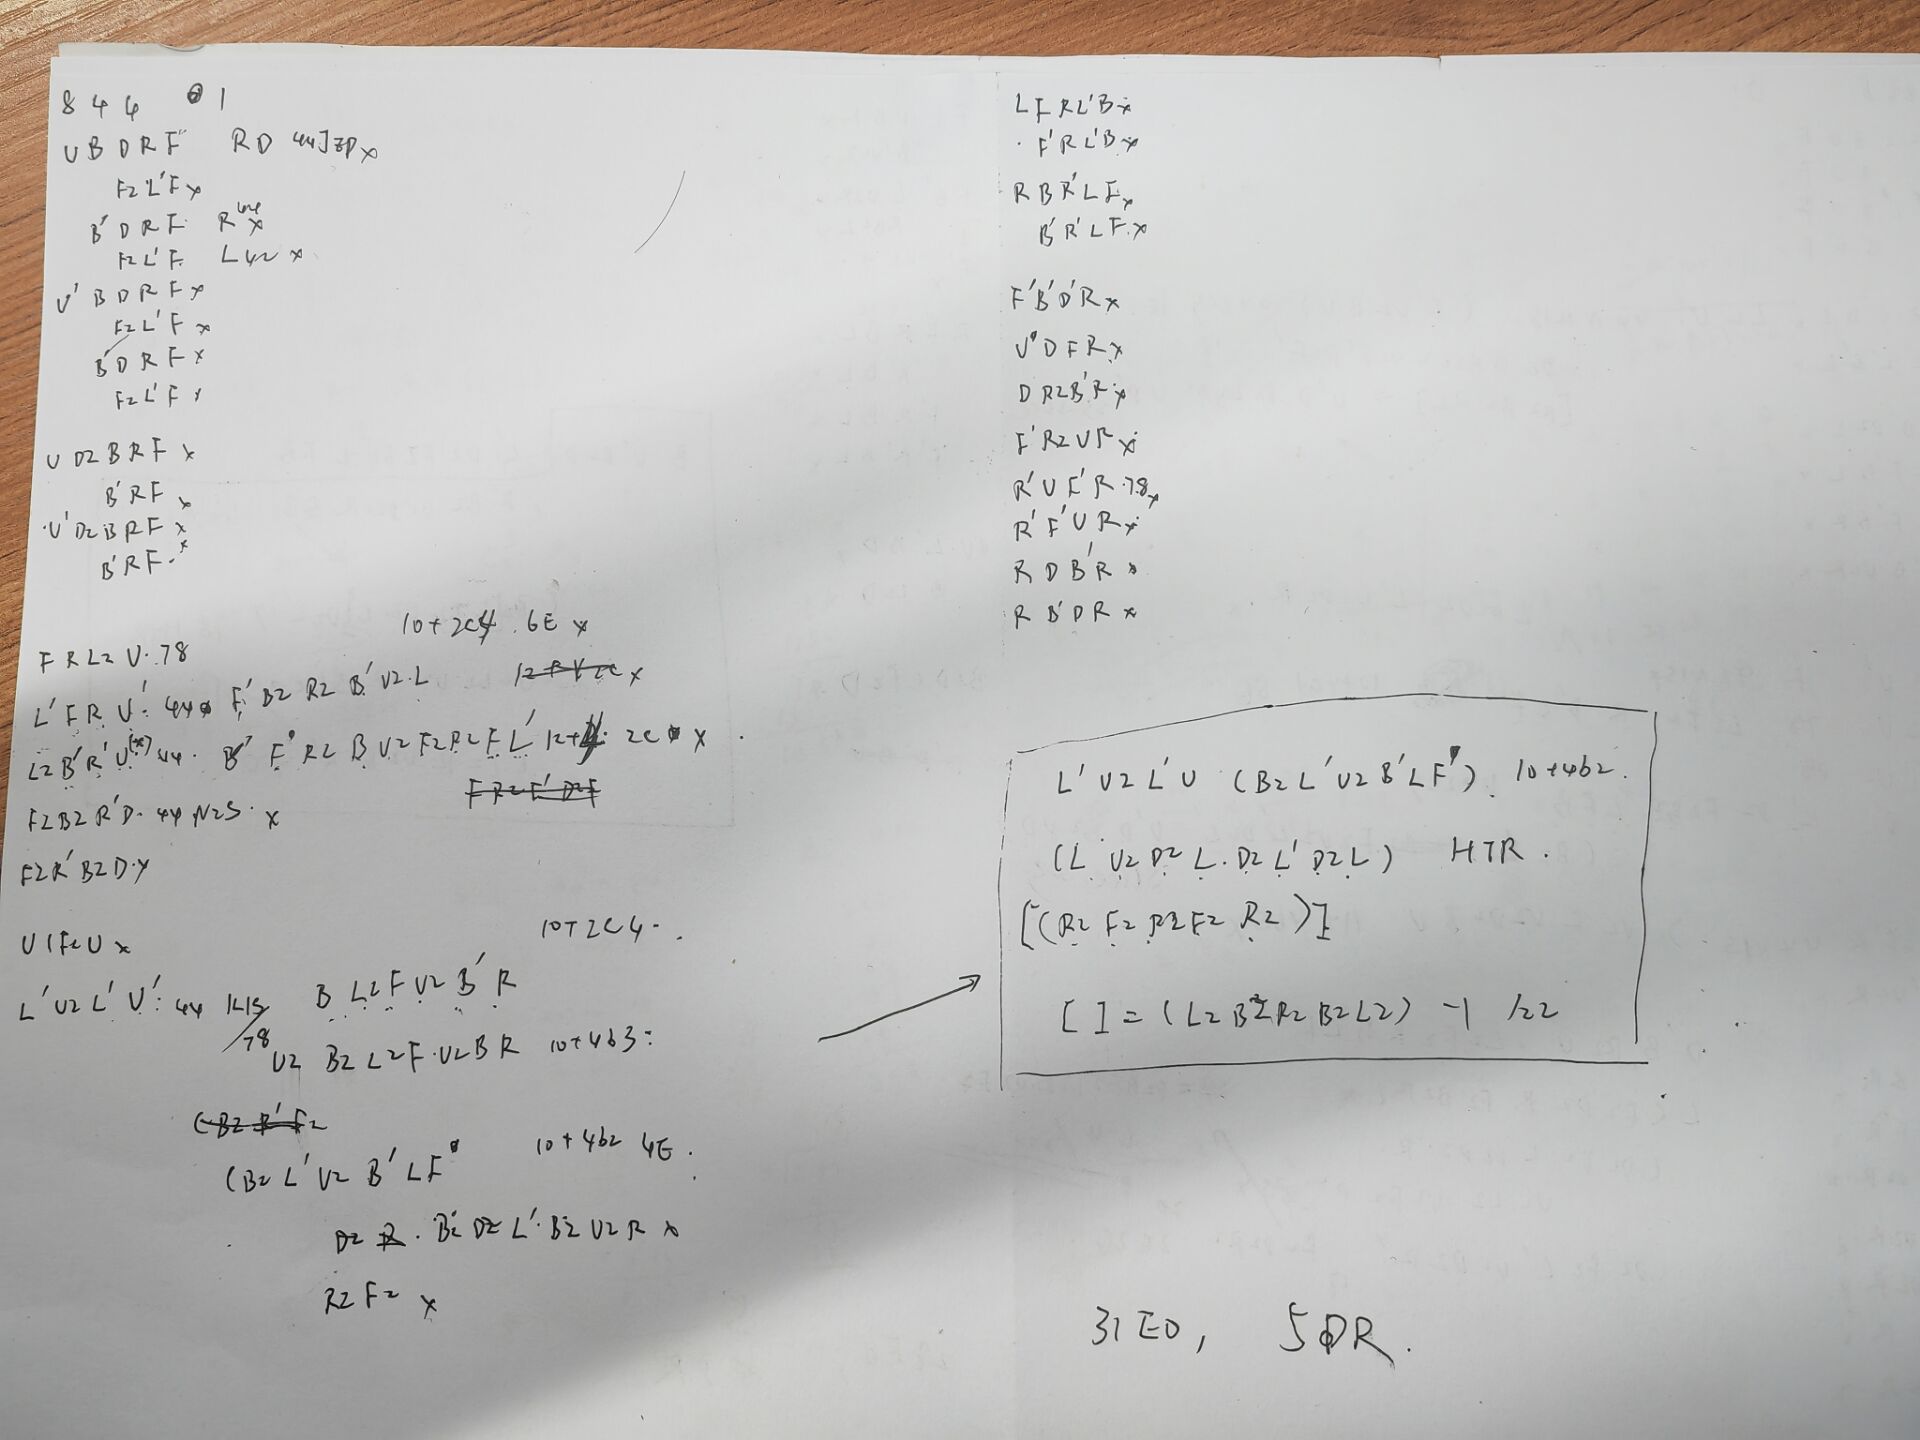 8 4 4 1
U B D R F' R D
F2 L' F x
B' D R F
F2 L' F L42 x
U' B D R F x
F2 L' F x
B' D R F x
F2 L' F x
U D2 B R F x
B' R F x
U' D2 B R F x
B' R F x
10+2c4 6E x
F R L2 U 78
L' F R U' 44 F' B2 R2 B' U2 L x
L2 B' R' U 44 F R2 B U2 F2 R2 F L' 2c x
F2 B2 R' D 44 x
F2 R' B2 D x
10+2c4
L' U2 L' U' 44 B L2 F U2 B' R
78 U2 B2 L2 F U2 B R 10+4b3
(B2 L' U2 B' L F 10+4b2 4E
D2 B2 D2 L' B2 U2 R x
R2 F2 x
L F R L' B x
F' R L' B x
R B R' L F x
B' R' L F x
F' B' D' R x
U D F R x
D R2 B' R x
F' R2 U R x
R' U F' R 78 x
R' F' U R x
R D B' R x
R B' D R x
L' U2 L' U (B2 L' U2 B' L F') 10+4b2
(L U2 D2 L D2 L' D2 L) HTR
[(R2 F2 R2 F2 R2)]
[ ] = (L2 B2 R2 B2 L2) -1 /22
31 EO, 5 DR.